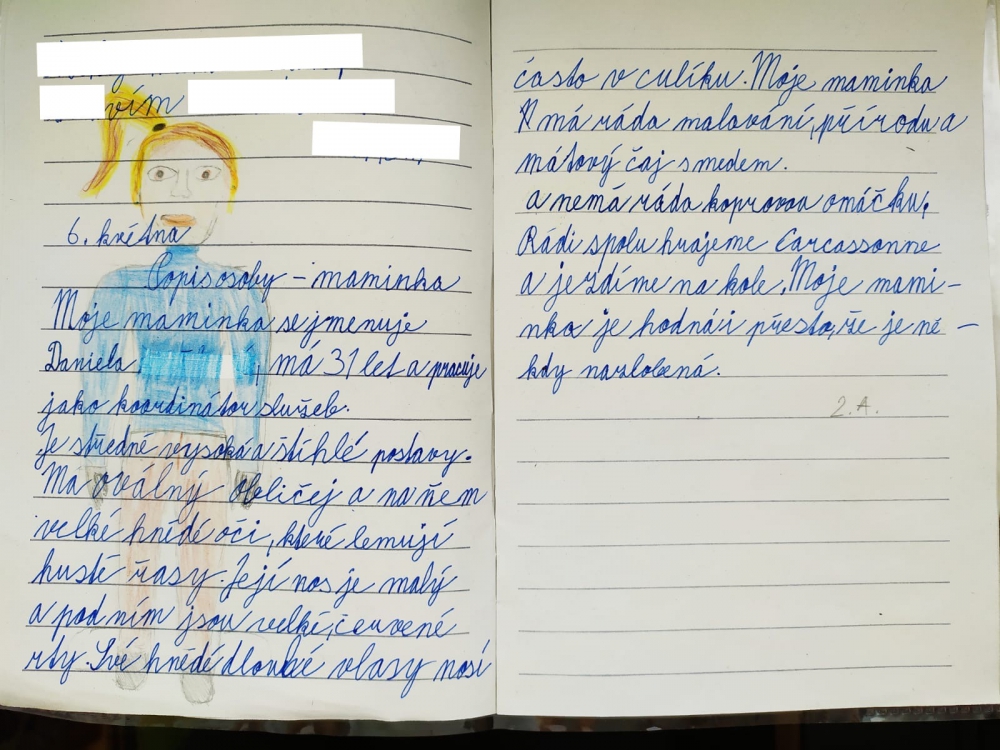 vím
6. května
Popis osoby – maminka
Moje maminka se jmenuje
Daniela, má 31 let a pracuje
jako koordinátor služeb.
Je středně vysoká a štíhlé postavy.
Má oválný obličej a na ňem
velké hnědé oči, které lemují
husté řasy. Její nos je malý
a pod ním jsou velké, červené
rty. Své hnědé dlouhé vlasy nosí
často v culíku. Moje maminka
má ráda malování, přírodu a
mátový čaj s medem.
a nemá ráda koprovou omáčku.
Rádi spolu hrajeme Carcassonne
a jezdíme na kole. Moje mami–
nka je hodná i přesto, že je ně–
kdy nazlobená.
2.A.